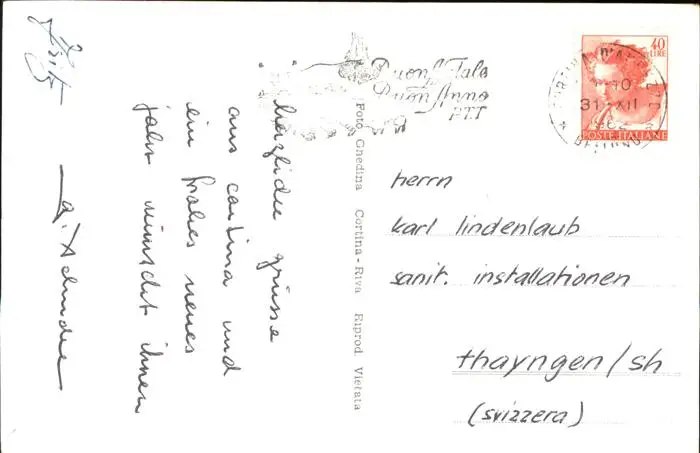 Fritz
herzliche grüsse
aus cortina und
ein frohes neues
jahr wünscht ihnen
Foto Gnedina Cortina - Riva Riprod. Vietata
Buon Natale
Buon Anno
PTT
40
LIRE
CORTINA D'AMPEZZO
10
31 XII
BELLUNO
POSTE ITALIANE
herrn
karl lindenlaub
sanit. installationen
thayngen/sh
(svizzera)